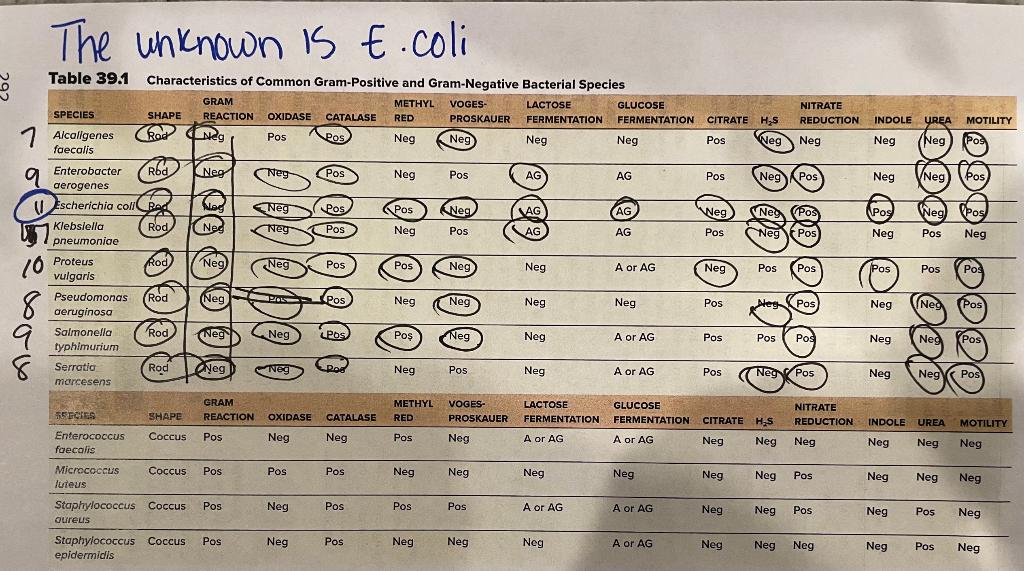 The unknown is E.coli
292
Table 39.1 Characteristics of Common Gram-Positive and Gram-Negative Bacterial Species
SPECIES SHAPE GRAM REACTION OXIDASE CATALASE METHYL RED VOGES-PROSKAUER LACTOSE FERMENTATION GLUCOSE FERMENTATION CITRATE H₂S NITRATE REDUCTION INDOLE UREA MOTILITY
7 Alcaligenes faecalis Rod Neg Pos Pos Neg Neg Neg Neg Pos Neg Neg Neg Neg Pos
9 Enterobacter aerogenes Rod Neg Neg Pos Neg Pos AG AG Pos Neg Pos Neg Neg Pos
11 Escherichia coli Rod Neg Neg Pos Pos Neg AG AG Neg Neg Pos Pos Neg Pos
7 Klebsiella pneumoniae Rod Neg Neg Pos Neg Pos AG AG Pos Neg Pos Neg Pos Neg
10 Proteus vulgaris Rod Neg Neg Pos Pos Neg Neg A or AG Neg Pos Pos Pos Pos Pos
8 Pseudomonas aeruginosa Rod Neg Pos Pos Neg Neg Neg Neg Pos Neg Pos Neg Neg Pos
9 Salmonella typhimurium Rod Neg Neg Pos Pos Neg Neg A or AG Pos Pos Pos Neg Neg Pos
8 Serratia marcesens Rod Neg Neg Pos Neg Pos Neg A or AG Pos Neg Pos Neg Neg Pos
SPECIES SHAPE GRAM REACTION OXIDASE CATALASE METHYL RED VOGES-PROSKAUER LACTOSE FERMENTATION GLUCOSE FERMENTATION CITRATE H₂S NITRATE REDUCTION INDOLE UREA MOTILITY
Enterococcus faecalis Coccus Pos Neg Neg Pos Neg A or AG A or AG Neg Neg Neg Neg Neg Neg
Micrococcus luteus Coccus Pos Pos Pos Neg Neg Neg Neg Neg Neg Pos Neg Neg Neg
Staphylococcus aureus Coccus Pos Neg Pos Pos Pos A or AG A or AG Neg Neg Pos Neg Pos Neg
Staphylococcus epidermidis Coccus Pos Neg Pos Neg Neg Neg A or AG Neg Neg Neg Neg Pos Neg